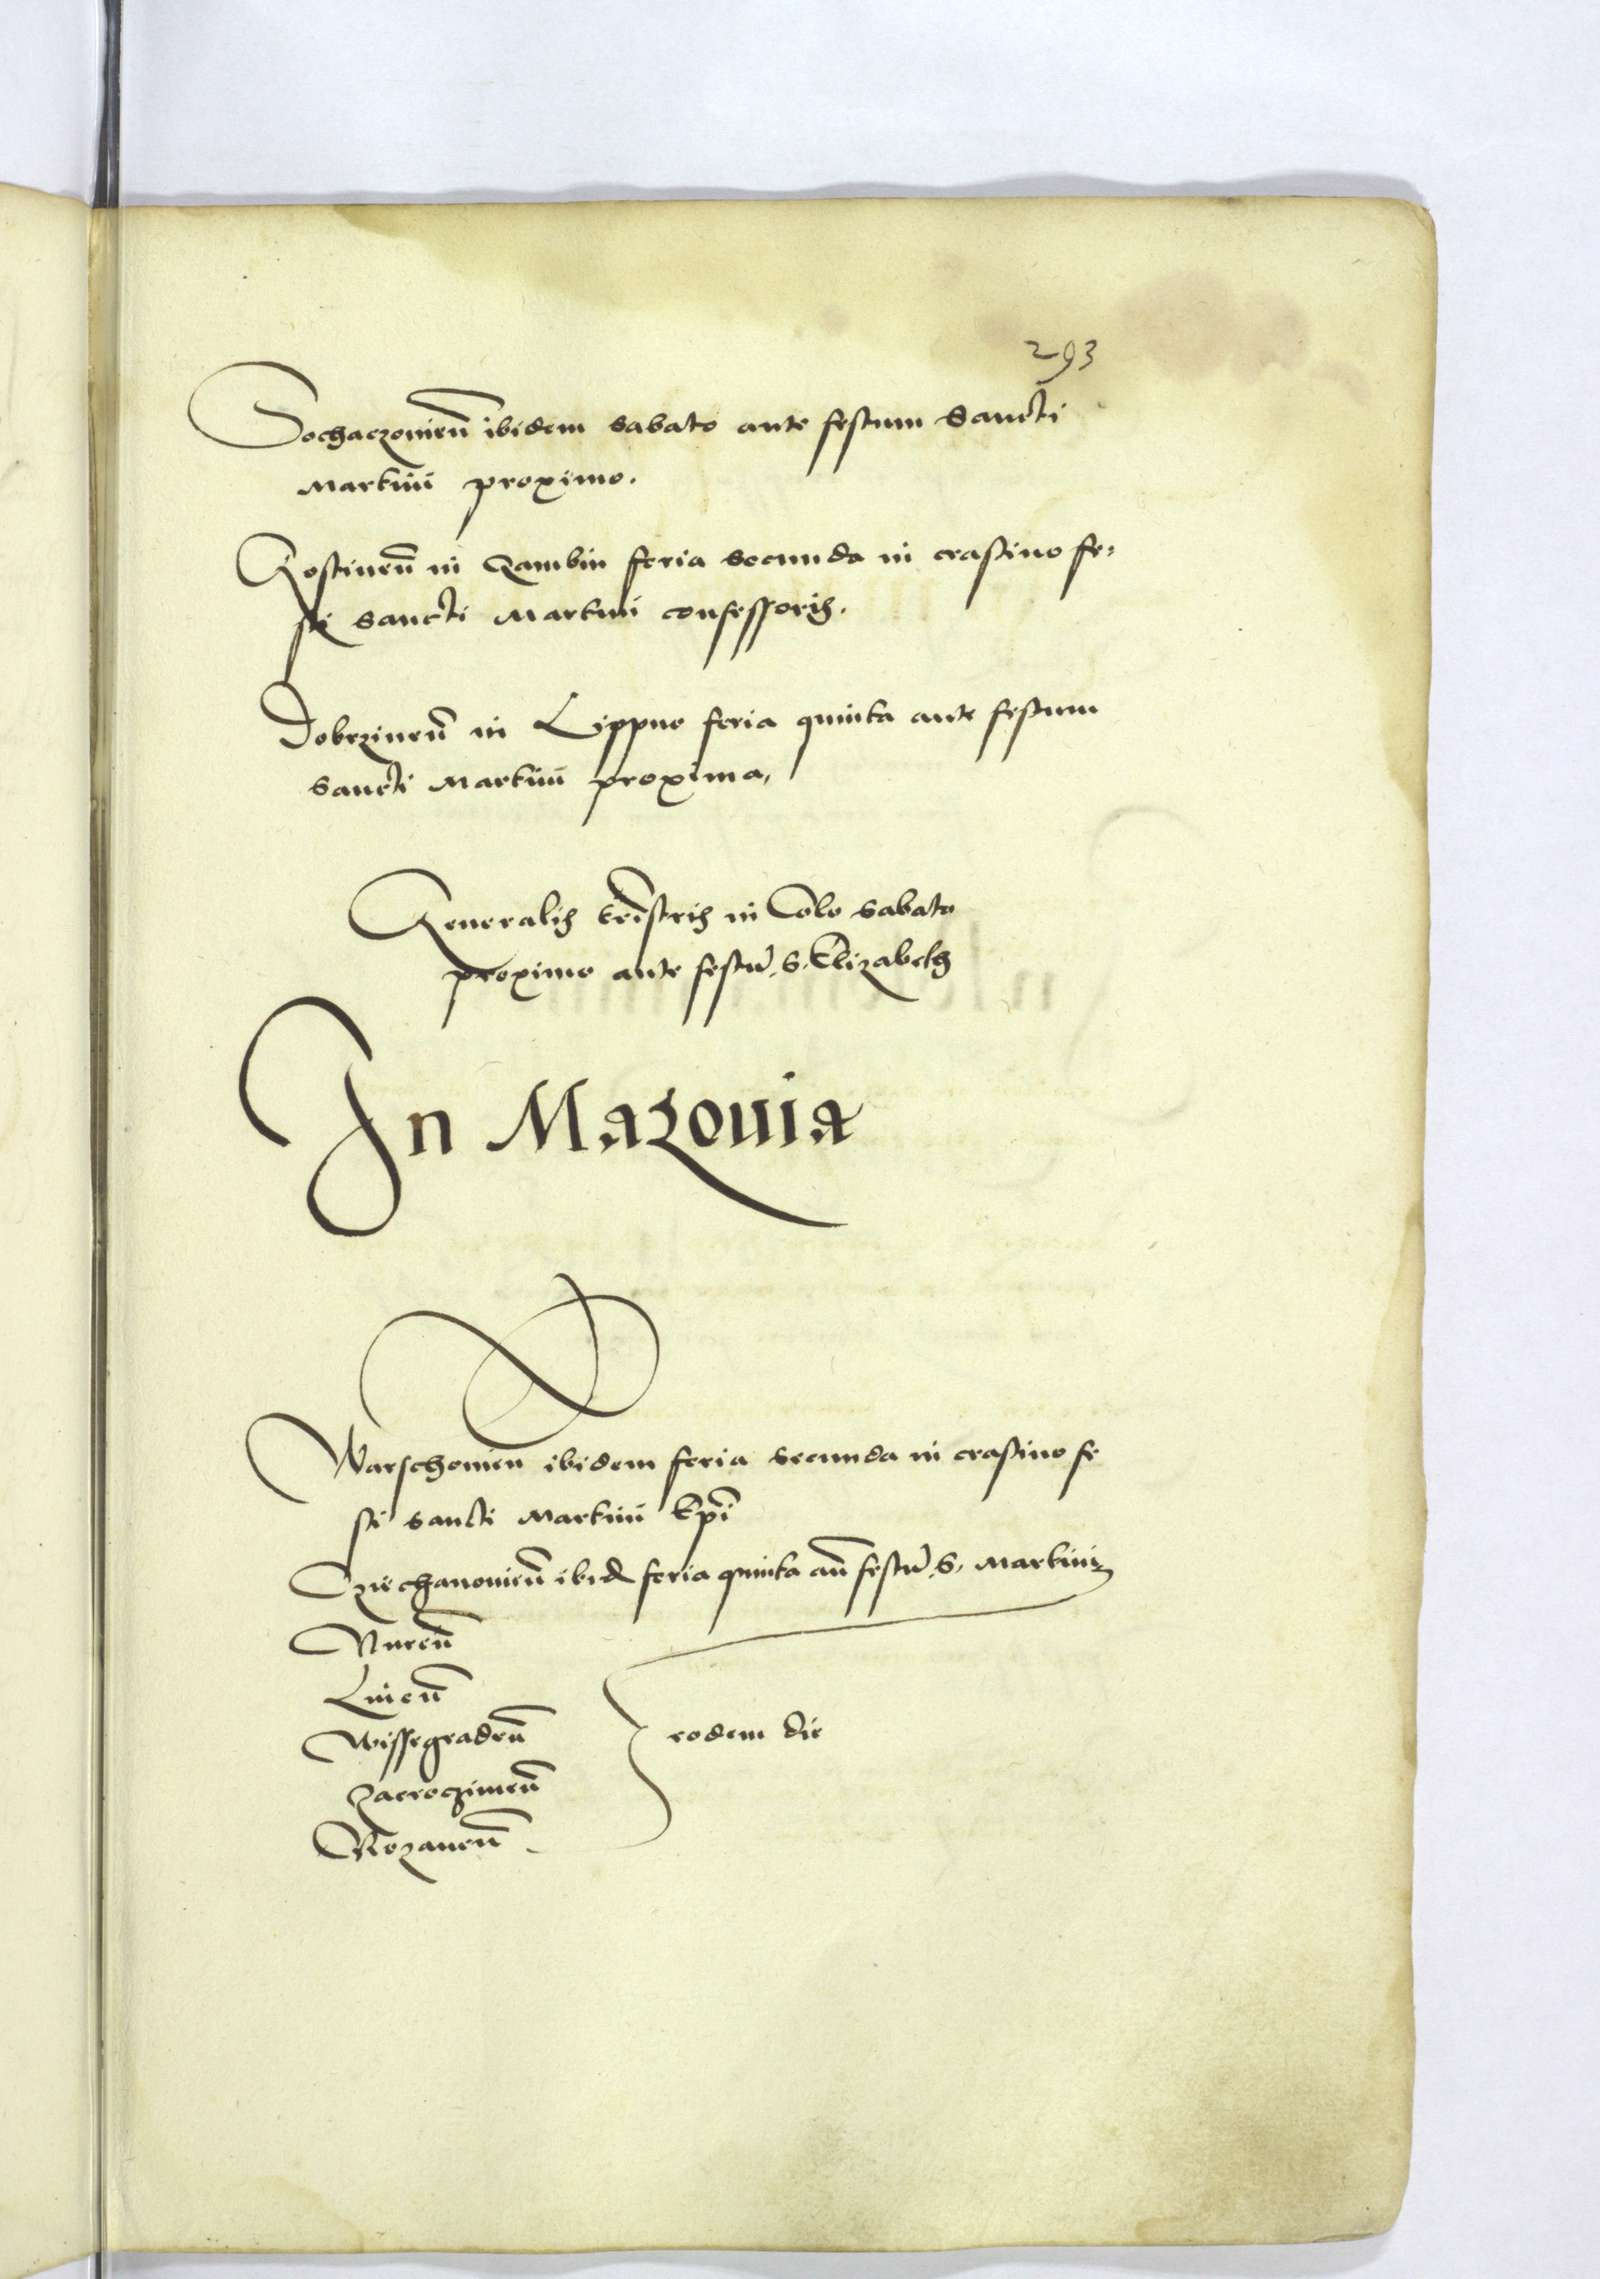 293
Sochaczouien̄ ibidem sabato ante festum Sancti
Martini proximo.
Gostinen̄ in Gambin feria secunda in crastino fe=
sti sancti Martini confessoris.
Dobrzinen̄ in Lippno feria quinta ante festum
sancti Martini proxima,
Generalis tr̄estris in Colo sabato
proximo ante festū S. Elizabeth
In Mazouia
Warschouien ibidem feria secunda in crastino fe
sti sancti Martini Ep̄i
Cziechanouien̄ ibid feria quinta an̄ festū S. Martini
Nuren̄
Liuen̄
Wissegraden̄
Zacroczimen̄
eodem die
Rozanen̄